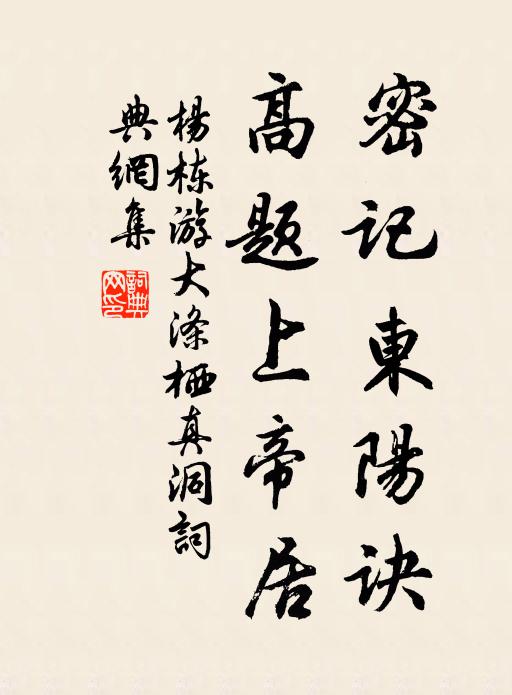 密记東陽诀
高题上帝居
楊栋游大涤栖真洞詞
典網集
詞典網印